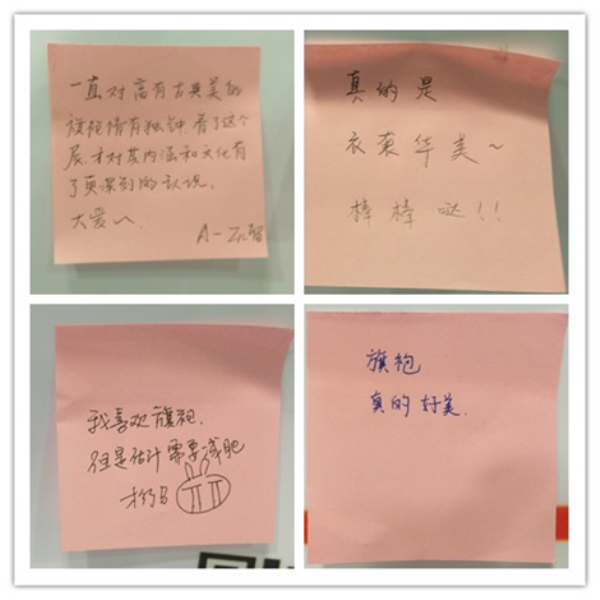 一直对富有古典美的
旗袍情有独钟,看了这个
展,才对其内涵和文化有
了更深刻的认识。
大爱~
真的是
衣裳华美~
棒棒哒!!
我喜欢旗袍,
但是估计需要减肥
才行
旗袍
真的好美.